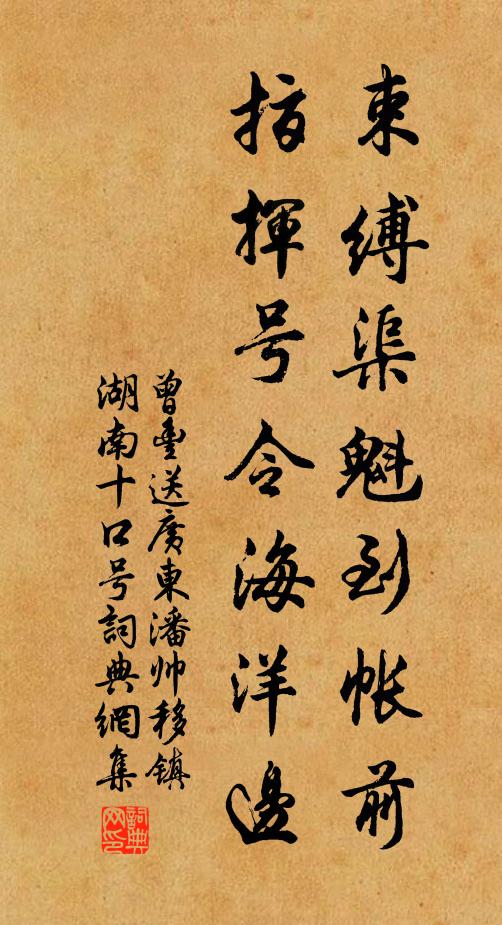 束缚渠魁到帐前
指挥号令海洋邊
曾豊送廣東潘帅移镇
湖南十口号詞典網集
詞典网印